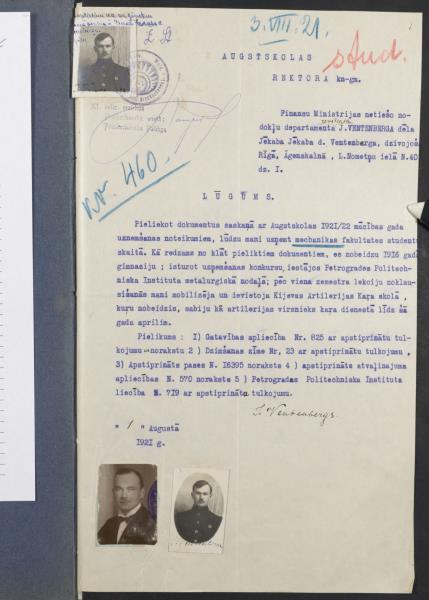 3.VIII.21.
stud.
AUGSTSKOLAS
REKTORA kn-gm.
Finansu Ministrijas netiešo no-
dokļu departamenta J.VENTENBERGA dēla
Jēkaba Jēkaba d. Ventenberga, dzīvojoš
Rīgā, Āgenskalnā, L.Nometņu ielā N.40
dz. I.
№ 460.
LŪGUMS.
Pieliekot dokumentus saskaņā ar Augstskolas 1921/22 mācības gada
uzņemšanas noteikumiem, lūdzu mani uzņemt mechanikas fakultates studentu
skaitā. Kā redzams no klāt pieliktiem dokumentiem, es nobeidzu 1916 gadā
gimnaziju ; izturot uzņemšanas konkursu, iestājos Petrogrades Politech-
niska Instituta metalurģiskā nodaļā; pēc viena semestra lekciju noklau-
sīšanās mani mobilizēja un ievietoja Kijevas Artilerijas Kaŗa skolā ,
kuŗu nobeidzis, sabiju kā artilerijas virsnieks kaŗa dienestā līdz šā
gada aprilim.
Pielikums : I) Gatavības apliecība Nr. 825 ar apstiprinātu tul-
kojumu norakstu 2) Dzimšanas zīme Nr, 23 ar apstiprinātu tulkojumu ,
3) Apstiprināts pases N. I6395 noraksts 4 ) apstiprināts atvaļinajuma
apliecības N. 570 noraksts 5 ) Petrogradas Politechniska Instituta
liecība N. 7I9 ar apstiprināta tulkojumu.
J. Ventenbergs.
" 1 " Augustā
1921 g.